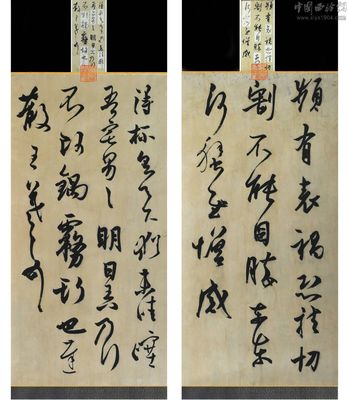 頻有哀禍悲摧切
割不能自勝奈何
奈何省慰增感
得示知足下猶未佳耿
耿吾亦劣劣明日出乃行
不欲觸霧故也遲
散王羲之頓首
中国西泠网